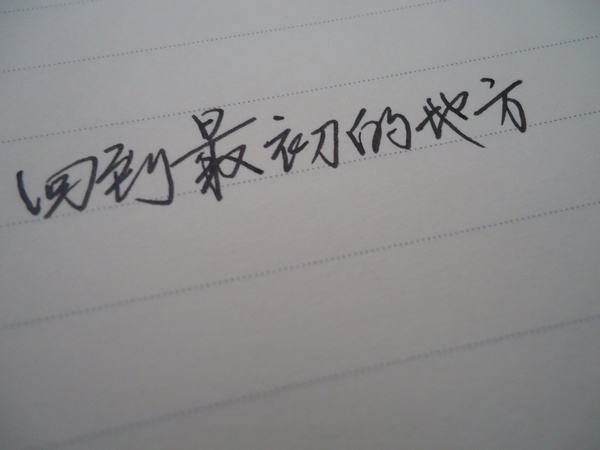 回到最初的地方